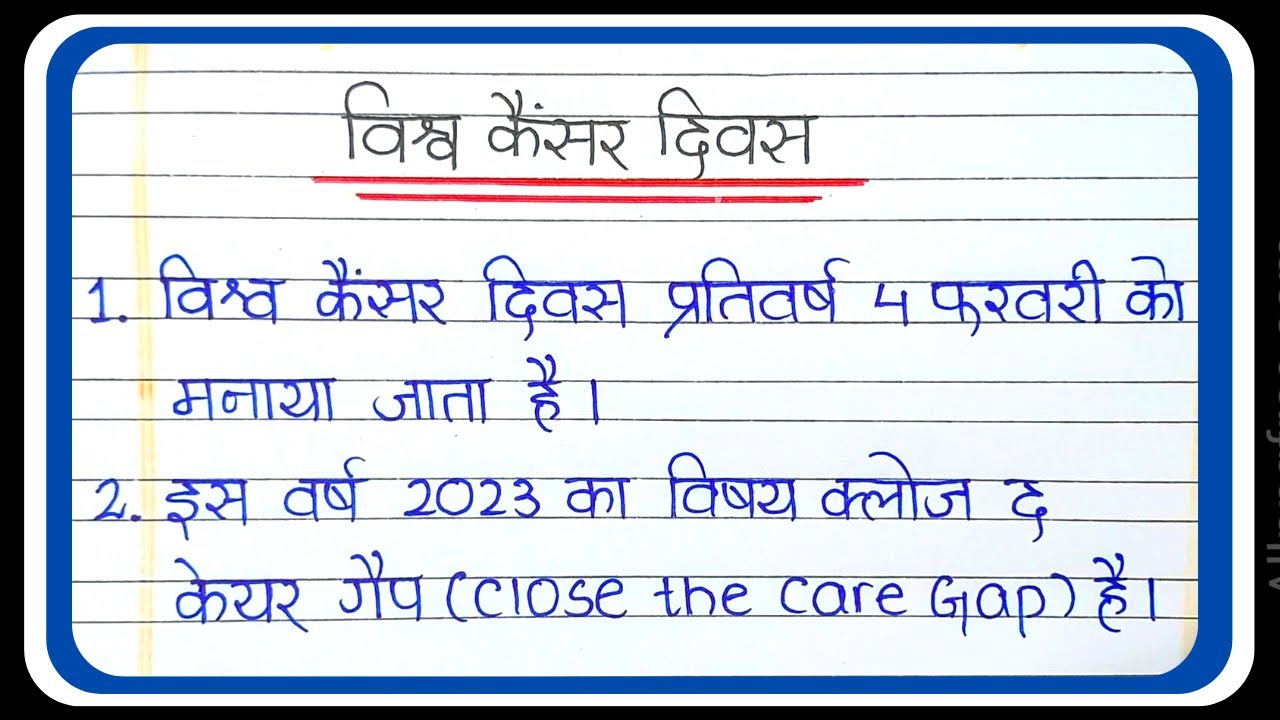 विश्व कैंसर दिवस
1. विश्व कैंसर दिवस प्रतिवर्ष 4 फरवरी को
मनाया जाता है।
2. इस वर्ष 2023 का विषय क्लोज द
केयर गैप (Close the Care Gap) है।